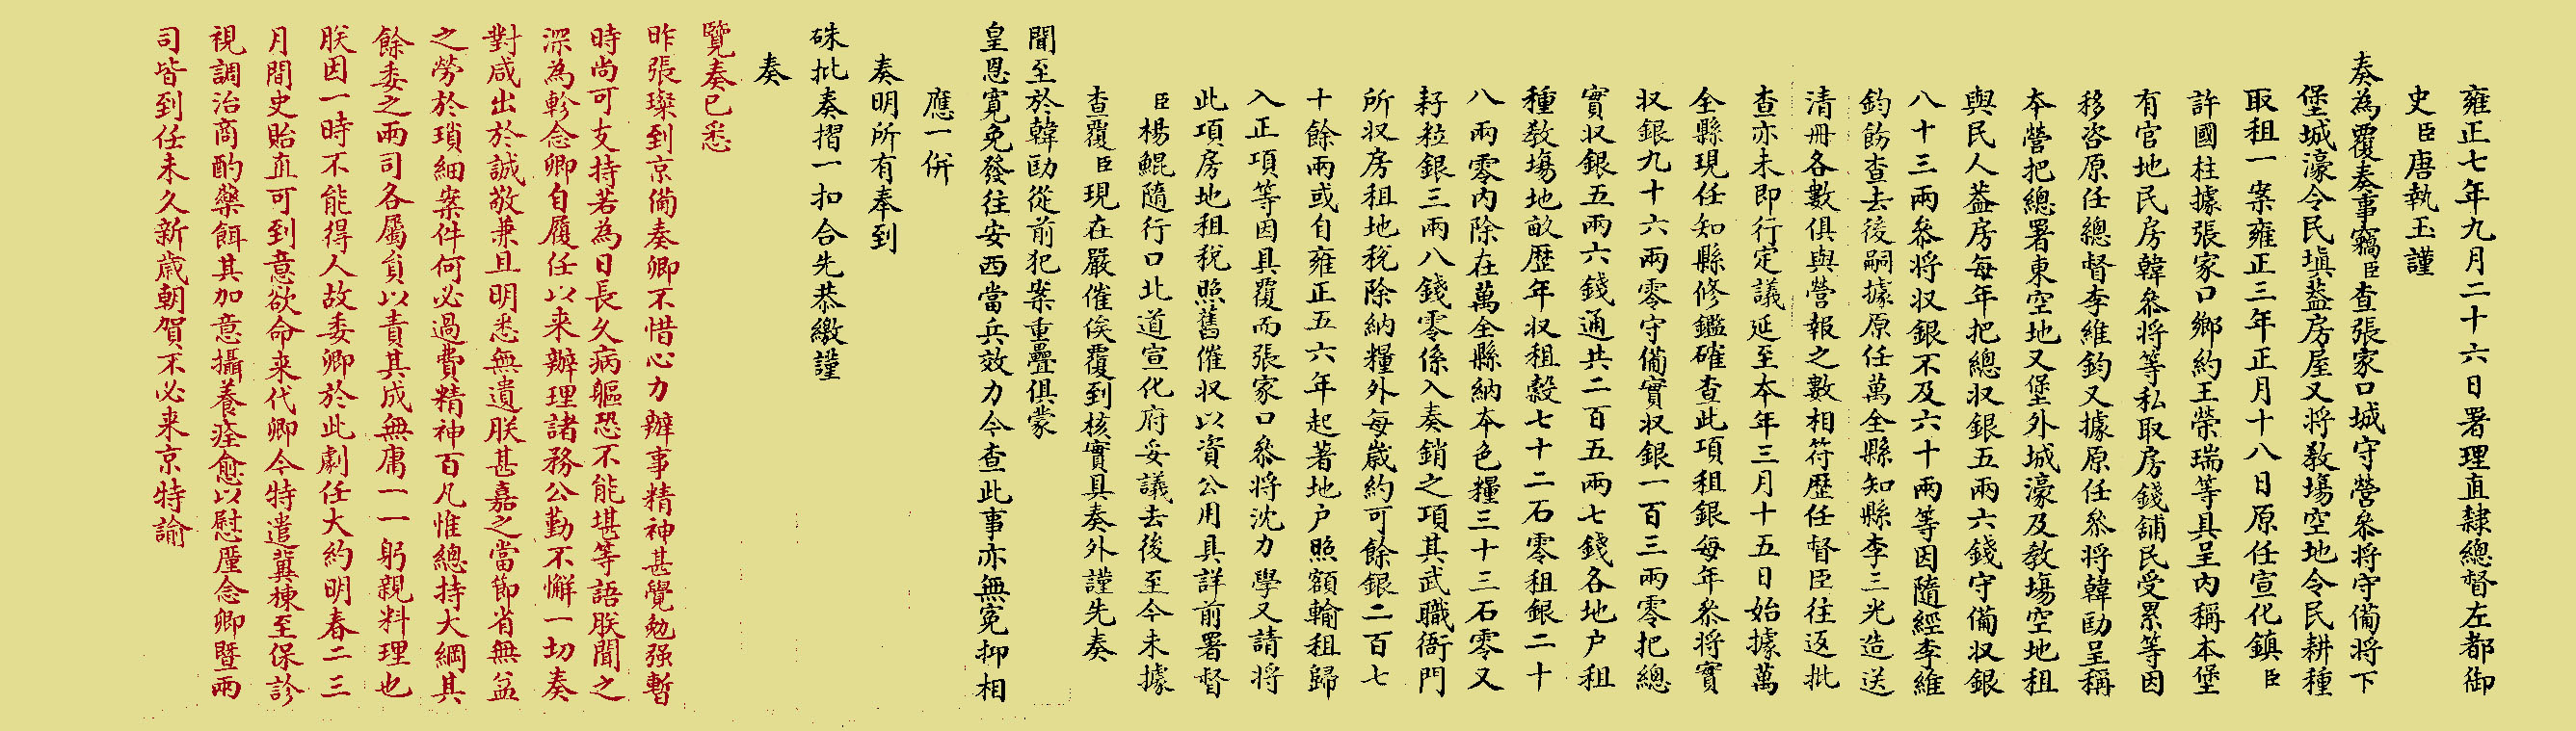 雍正七年九月二十六日署理直隸總督左都御
史臣唐執玉謹
奏為覆奏事竊臣查張家口城守營叅將守備將下
堡城濠令民塡葢房屋又將教塲空地令民耕種
取租一案雍正三年正月十八日原任宣化鎮臣
許國柱據張家口鄉約王榮瑞等具呈內稱本堡
有官地民房韓叅將等私取房錢舖民受累等因
移咨原任總督李維鈞又據原任叅將韓勛呈稱
本營把總署東空地又堡外城濠及教塲空地租
與民人葢房每年把總収銀五兩六錢守備収銀
八十三兩叅將収銀不及六十兩等因隨經李維
鈞飭查去後嗣據原任萬全縣知縣李三光造送
清冊各數俱與營報之數相符歷任督臣往返批
查亦未即行定議延至本年三月十五日始據萬
全縣現任知縣修鑑確查此項租銀每年叅將實
収銀九十六兩零守備實収銀一百三兩零把總
實収銀五兩六錢通共二百五兩七錢各地户租
種教塲地畝歷年収租穀七十二石零租銀二十
八兩零內除在萬全縣納本色糧三十三石零又
籽粒銀三兩八錢零係入奏銷之項其武職衙門
所収房租地稅除納糧外每歲約可餘銀二百七
十餘兩或自雍正五六年起著地户照額輸租歸
入正項等因具覆而張家口叅將沈力學又請將
此項房地租稅照舊催収以資公用具詳前署督
臣楊鯤隨行口北道宣化府妥議去後至今未據
查覆臣現在嚴催俟覆到核實具奏外謹先奏
聞至於韓勛從前犯案重疊俱蒙
皇恩寬免發往安西當兵效力今查此事亦無寃抑相
應一併
奏明所有奉到
硃批奏摺一扣合先恭繳謹
奏
覽奏已悉
昨張璨到京備奏卿不惜心力辦事精神甚覺勉强暫
時尚可支持若為日長久病軀恐不能堪等語朕聞之
深為軫念卿自履任以来辦理諸務公勤不懈一切奏
對咸出於誠敬兼且明悉無遺朕甚嘉之當節省無益
之勞於瑣細案件何必過費精神百凡惟總持大綱其
餘委之兩司各屬貟以責其成無庸一一躬親料理也
朕因一時不能得人故委卿於此劇任大約明春二三
月間史貽直可到意欲命来代卿今特遣冀棟至保診
視調治商酌藥餌其加意攝養痊愈以慰厪念卿暨兩
司皆到任未久新歲朝賀不必来京特諭